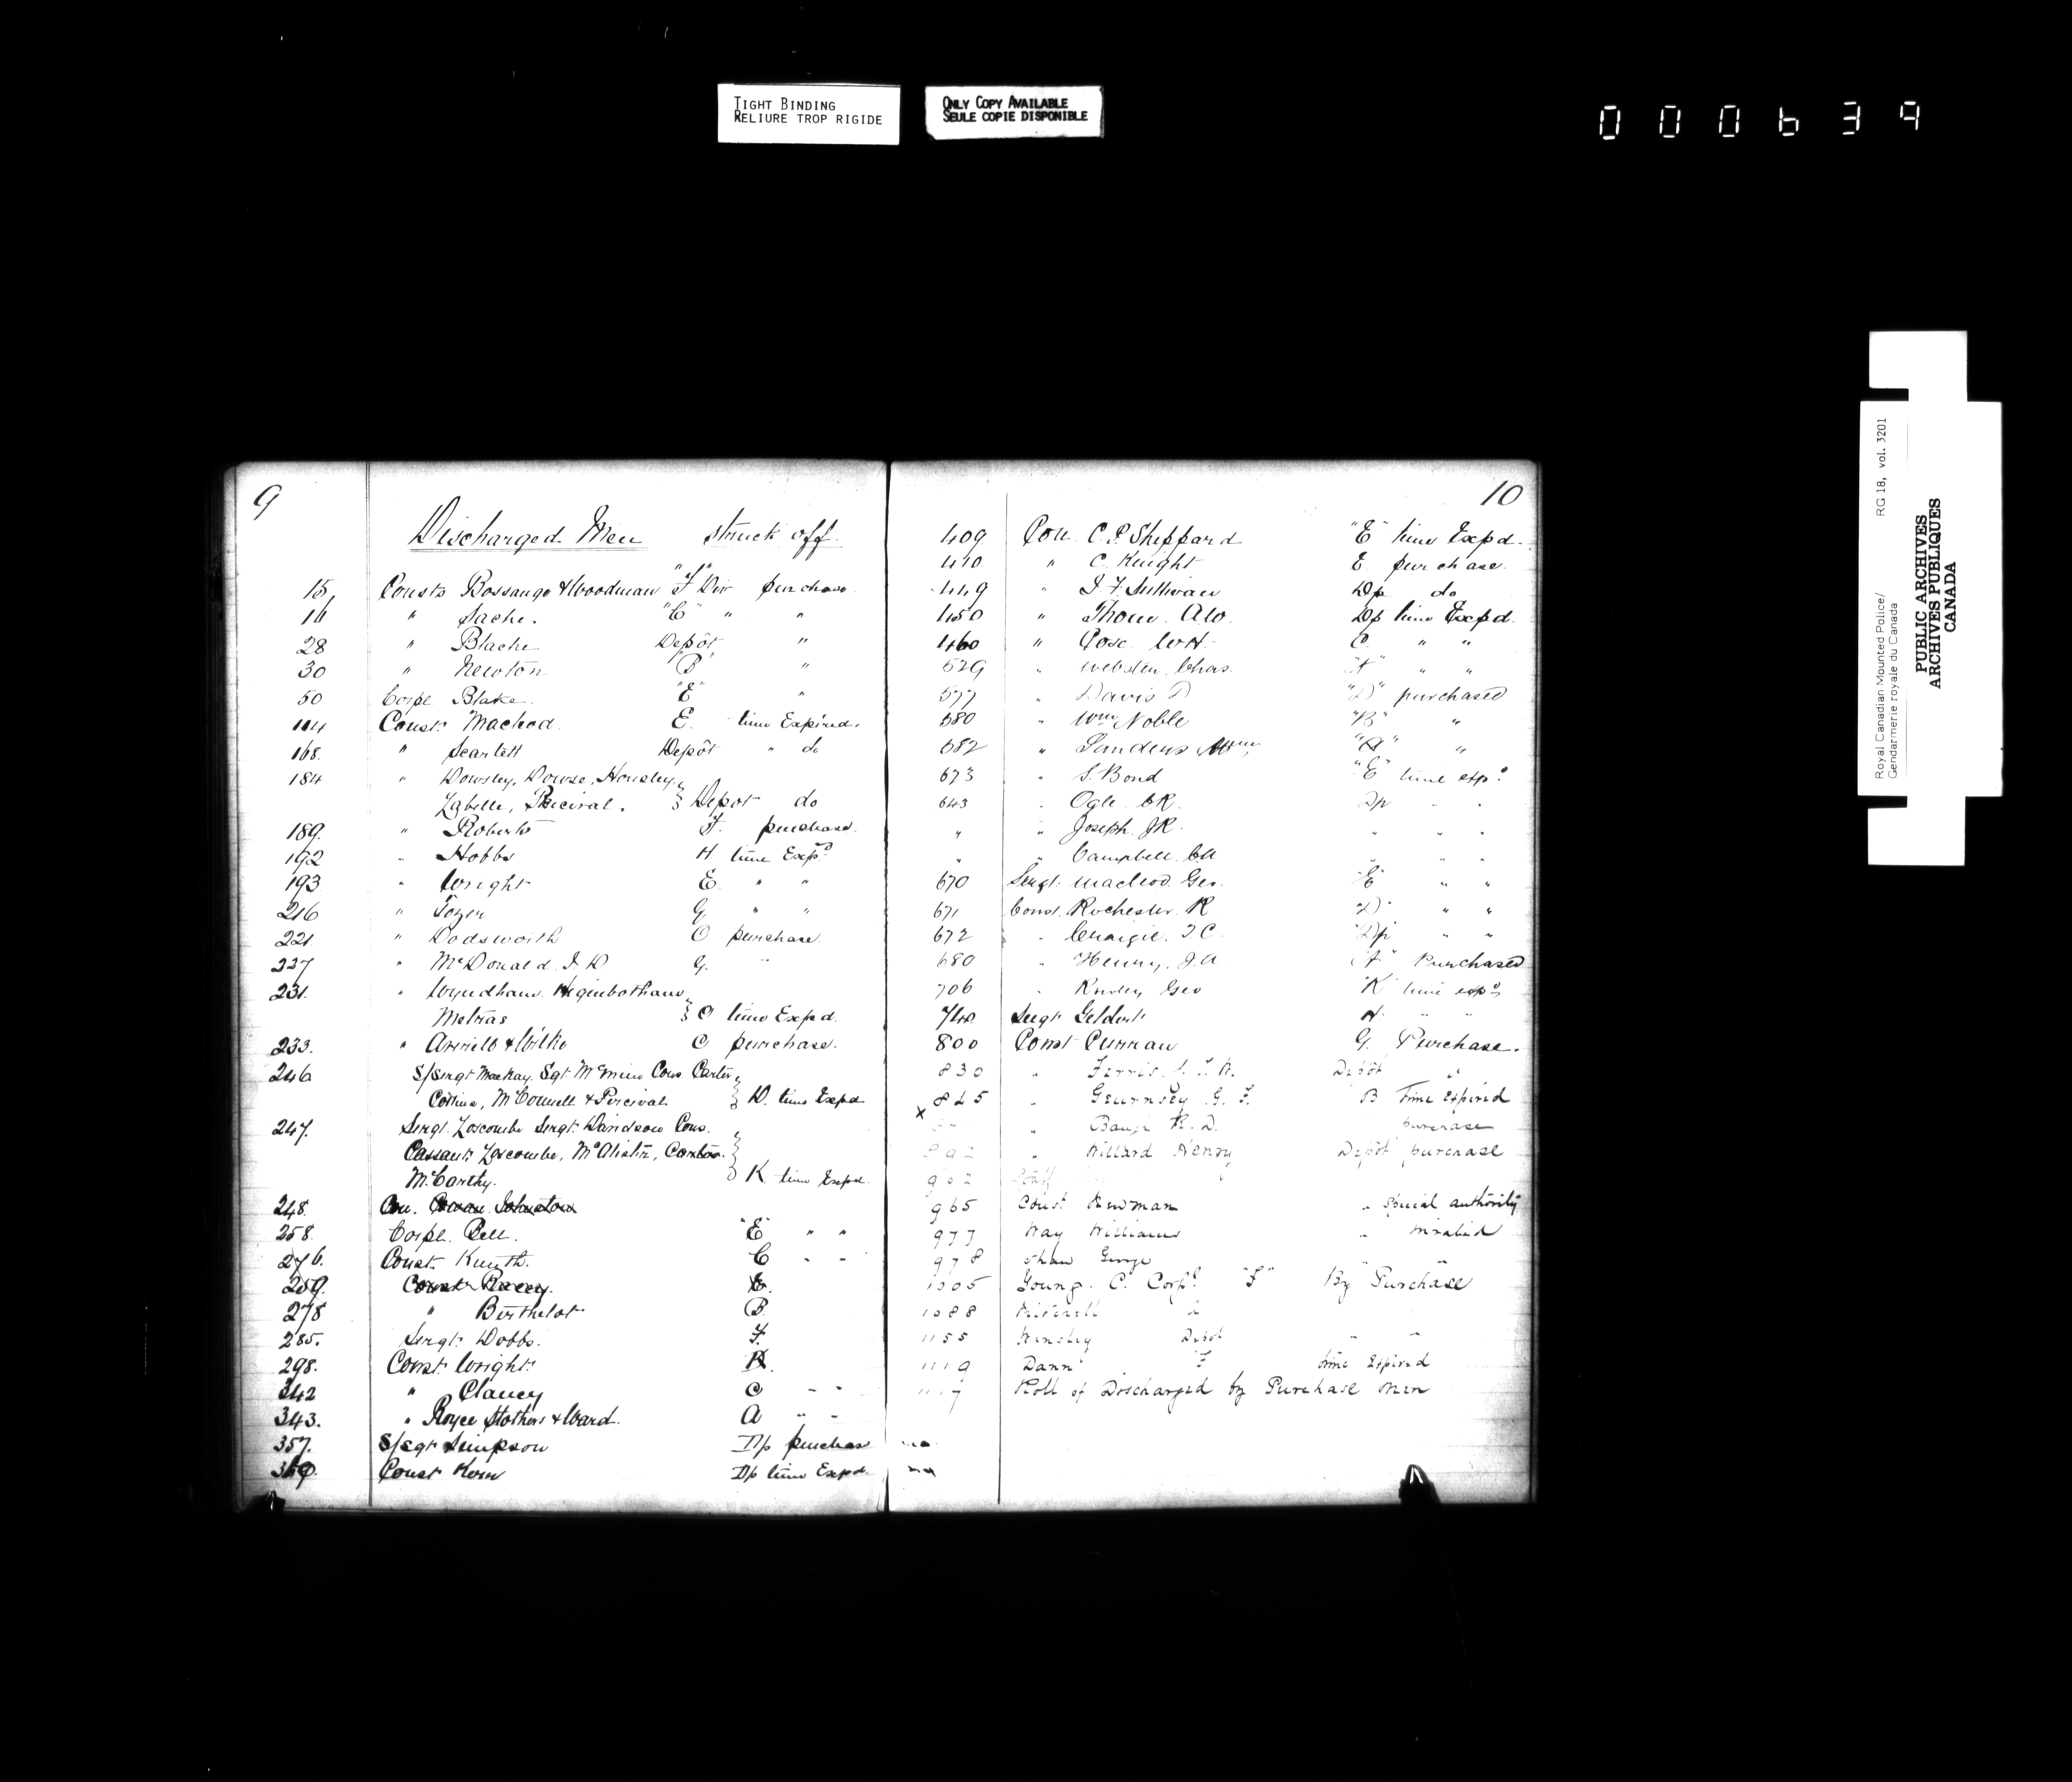 TIGHT BINDING
RELIURE TROP RIGIDE
ONLY COPY AVAILABLE
SEULE COPIE DISPONIBLE
000639
9
Discharged Men struck off.
15, Consts Bossange & Woodman "F" Div purchase
16 " Sache. "C" " "
28 " Blache Depôt "
30 " Newton "B" "
50 Corpl Blake. "E" "
Const. Macleod E. time Expired.
168. " Scarlett Depôt " do
184 " Dowsley, Dowse, Housley,
Labelle, Percival. } Depot do
189. " Roberts F. purchase.
192 " Hobbs H time Expd
193 " Wright E. " "
216 " Tozer G. " "
221. " Dodsworth C purchase.
227 " McDonald. J. D G. "
231. " Wyndham, Higinbotham,
Metras } C time Expd.
233. " & Wilkie C purchase.
246 S/Sergt MacKay. Sgt. Cons Carter,
Collins, McConnell & Percival } D. time Expd
247. Sergt. Loscombe Sergt. Davidson Cons.
Loscombe, McAlister,
McCarthy. } K time Expd.
248. Con. Johnston
258. Corpl. Bell. "E" " "
276. Const. C " "
259. Const. Racey. E.
278 " Berthelot B.
285. Sergt. Dobbs. F.
298. Const. Wright. K.
342 " Clancy C " "
343. " Royce Stothers & Ward. A " "
357. S/Sgt Simpson Dp purchase
Const Dp time Expd.
10
409. Con. C. P. Sheppard "E" time Expd.
410. " C. Knight E purchase.
449 " J. F. Sullivan Dp do
450 " Dp time Expd.
460 " W.H. C. " "
529 " Webster Chas. "A" " "
577 " Davis D "D" purchased
580 " Wm Noble "B" "
582 " Sanders "A" "
673 " S. Bond "E" time expd
643 " Ogle. Dp " "
" " Joseph. J.R. " " "
" " Campbell. " " "
670 Sergt. Macleod. Geo. "E" " "
671 Const. Rochester. R "D" " "
672 " "Dp " "
680 " Henry. J.A "F" Purchased
706 " Geo "K" time expd
740 Sergt Geldert H. " "
800 Const Curran G. Purchase.
830 " Ferris Depôt "
x 845 " Guernsey. G. F. B Time Expired
" purchase
892 " Willard Henry Depôt purchase
902 Staff
965 Const. Newman " Special authority
977 Way William " Invalid
978 Shaw George "
1005 Young. C. Corpl "F" By Purchase
1088 Mitchell
1155 Hensley Depot " "
1119 Dann F time Expired
Roll of Discharged by Purchase men
Royal Canadian Mounted Police/
Gendarmerie royale du Canada
RG 18, vol. 3201
PUBLIC ARCHIVES
ARCHIVES PUBLIQUES
CANADA